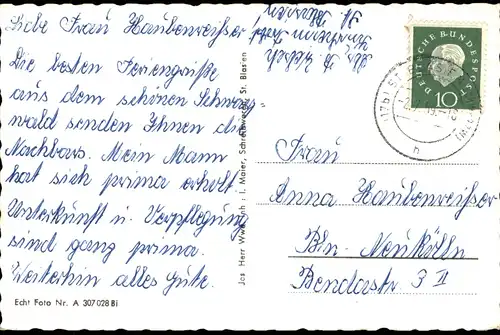 Liebe Frau Haubenreißer,
Die besten Feriengrüße
aus dem schönen Schwarz=
wald senden Ihnen die
Nachbars. Mein Mann
hat sich prima erholt.
Unterkunft u. Verpflegung
sind ganz prima.
Weiterhin alles Gute.
Echt Foto Nr. A 307 028 Bi
St. Blasien
DEUTSCHE BUNDESPOST
10
(17b) ST
h
Frau
Anna Haubenreißer
Bln - Neukölln
Bendastr. 3 II